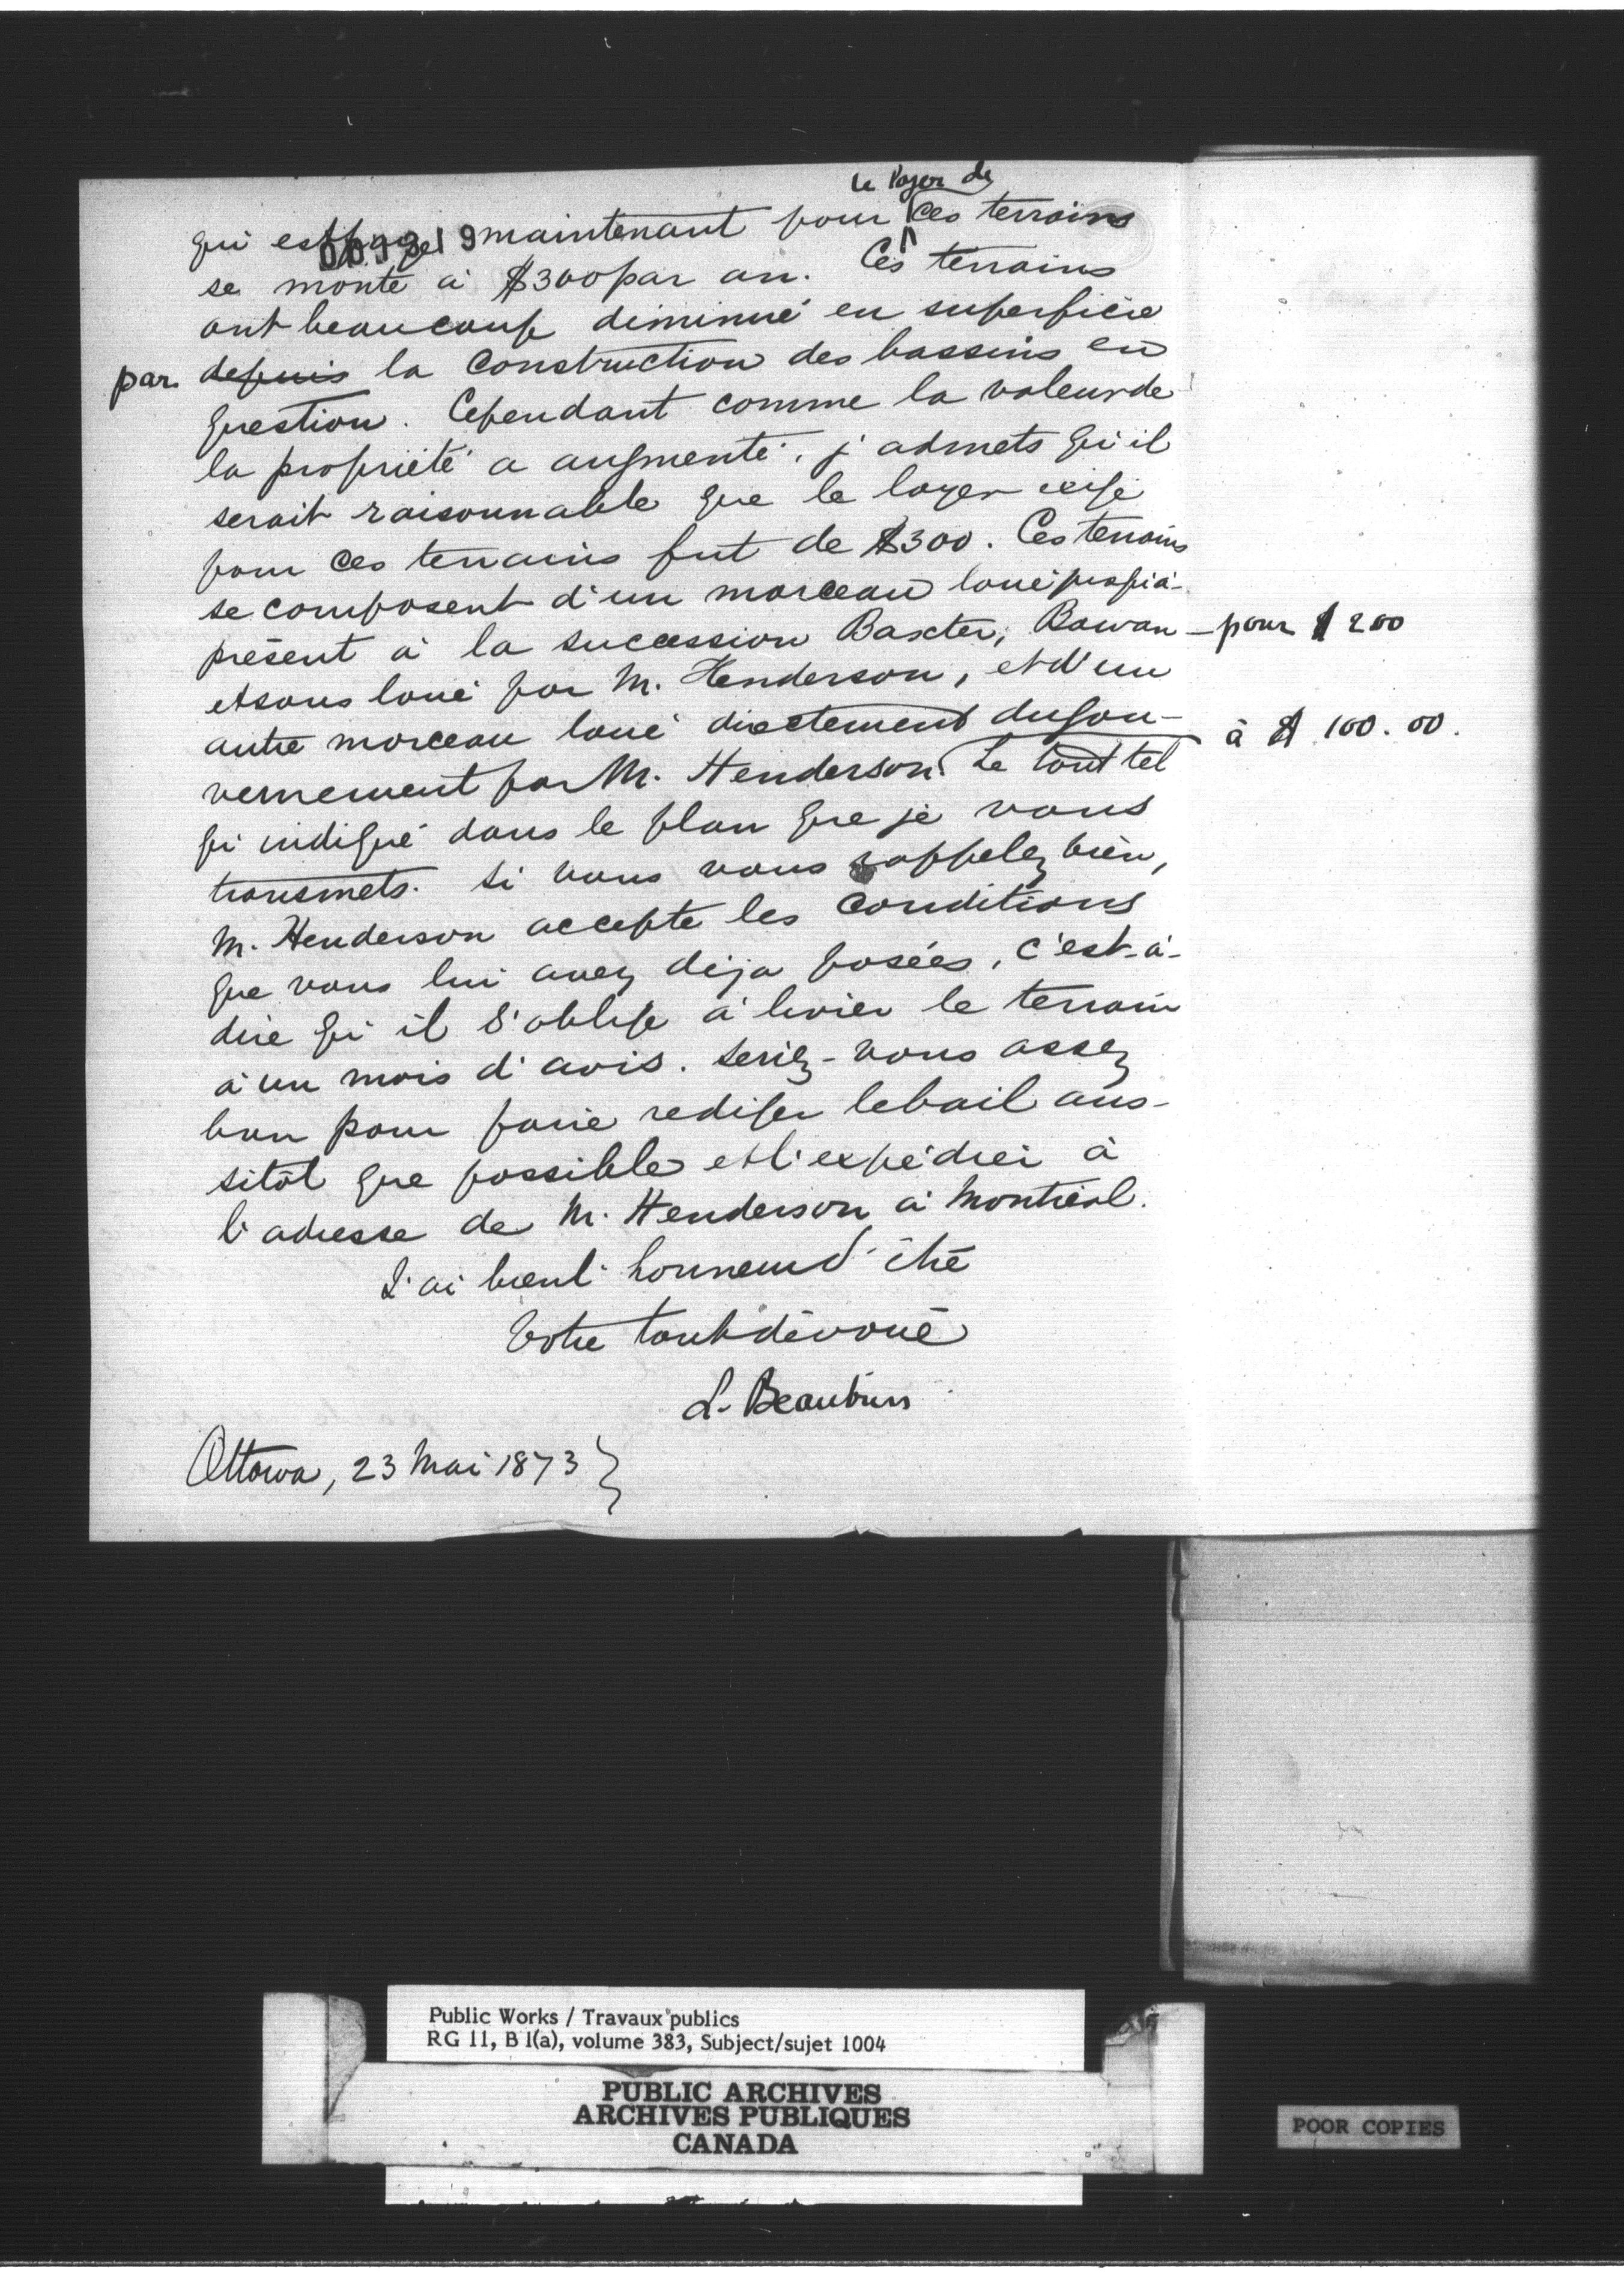 le loyer de
qui est payé maintenant pour ces terrains
009319
se monte à $300 par an. Ces terrains
ont beaucoup diminué en superficie
par depuis la construction des bassins en
question. Cependant comme la valeur de
la propriété a augmenté, j'admets qu'il
serait raisonnable que le loyer exigé
pour ces terrains fut de $300. Ces terrains
se composent d'un morceau loué jusqu'à-
présent à la succession Baxter, Bowan - pour $200
et sous loué par M. Henderson, et d'un
autre morceau loué directement du gou- à $100.00.
vernement par M. Henderson. Le tout tel
qu'indiqué dans le plan que je vous
transmets. Si vous vous rappelez bien,
M. Henderson accepte les conditions
que vous lui avez déja posées, c'est-à-
dire qu'il s'oblige à livrer le terrain
à un mois d'avis. Seriez-vous assez
bon pour faire rediger le bail aus-
sitôt que possible et l'expédier à
l'adresse de M. Henderson à Montréal.
J'ai bien l'honneur d'être
Votre tout dévoué
L. Beaubien
Ottawa, 23 Mai 1873
Public Works / Travaux publics
RG 11, B 1(a), volume 383, Subject/sujet 1004
PUBLIC ARCHIVES
ARCHIVES PUBLIQUES
CANADA
POOR COPIES